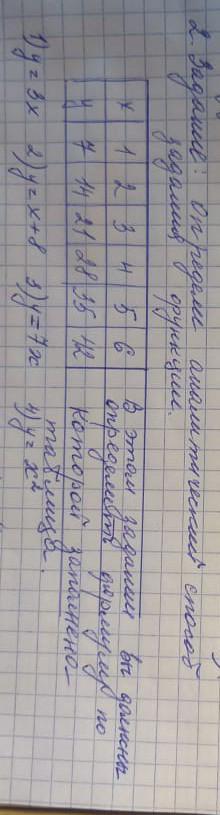 2. Задание: Определи аналитический способ
задания функции.
x 1 2 3 4 5 6
y 7 14 21 28 35 42
В этом задании вы должны
определить формулу по
которой заполнено-
таблица.
1) y = 3x 2) y = x + 8 3) y = 7x 4) y = x²